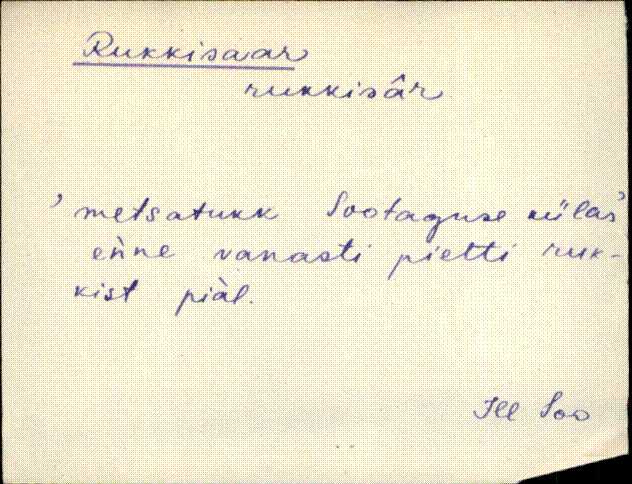 Rukkisaar
rukkisâr
'metsatukk Sootaguse külas'
eǹne vanasti pietti ruk-
kist piàl.
Ill Soo